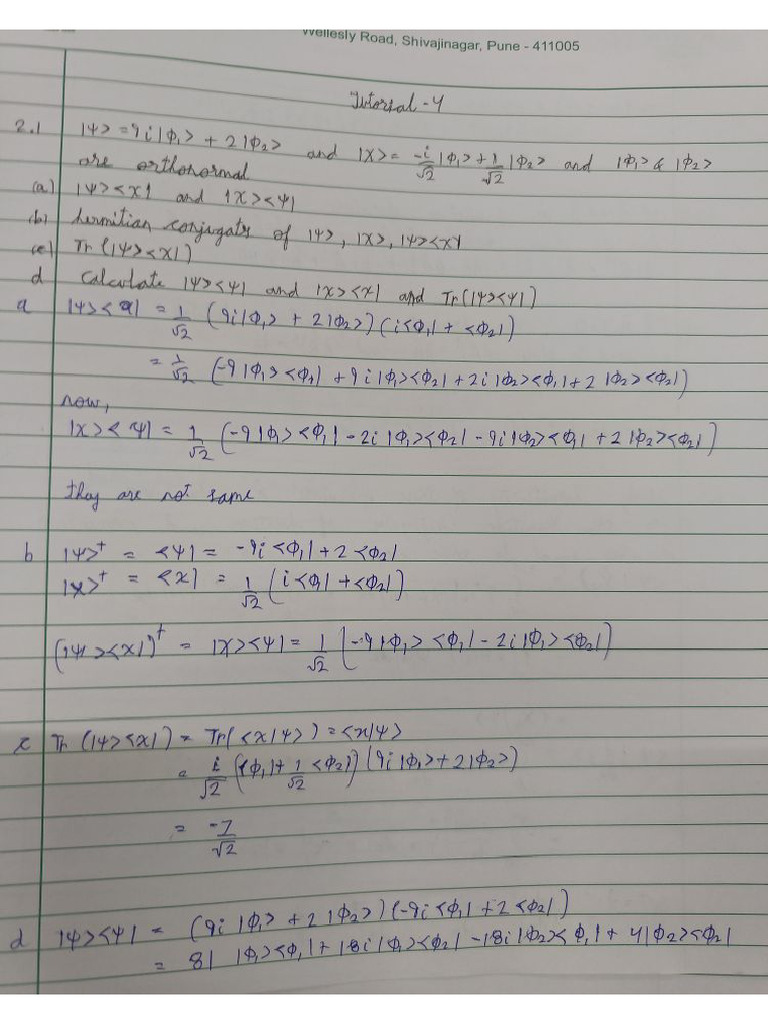 Wellesly Road, Shivajinagar, Pune - 411005
Tutorial - 4
2.1 |ψ> = 9i|φ₁> + 2|φ₂> and |χ> = -i/√2 |φ₁> + 1/√2 |φ₂> and |φ₁> & |φ₂>
are orthonormal
(a) |ψ><χ| and |χ><ψ|
(b) hermitian conjugate of |ψ>, |χ>, |ψ><χ|
(c) Tr(|ψ><χ|)
d calculate |ψ><ψ| and |χ><χ| and Tr(|ψ><ψ|)
a |ψ>< | = 1/√2 (9i|φ₁> + 2|φ₂>)(i<φ₁| + <φ₂|)
= 1/√2 (-9|φ₁><φ₁| + 9i|φ₁><φ₂| + 2i|φ₂><φ₁| + 2|φ₂><φ₂|)
now,
|χ><ψ| = 1/√2 (-9|φ₁><φ₁| - 2i|φ₁><φ₂| - 9i|φ₂><φ₁| + 2|φ₂><φ₂|)
they are not same
b |ψ>† = <ψ| = -9i<φ₁| + 2<φ₂|
|χ>† = <χ| = 1/√2 (i<φ₁| + <φ₂|)
(|ψ><χ|)† = |χ><ψ| = 1/√2 (-9|φ₁><φ₁| - 2i|φ₁><φ₂|)
c Tr(|ψ><χ|) = Tr(<χ|ψ>) = <χ|ψ>
= i/√2 (<φ₁| + 1/√2 <φ₂|)(9i|φ₁> + 2|φ₂>)
= -7/√2
d |ψ><ψ| = (9i|φ₁> + 2|φ₂>)(-9i<φ₁| + 2<φ₂|)
= 81 |φ₁><φ₁| + 18i|φ₁><φ₂| - 18i|φ₂><φ₁| + 4|φ₂><φ₂|